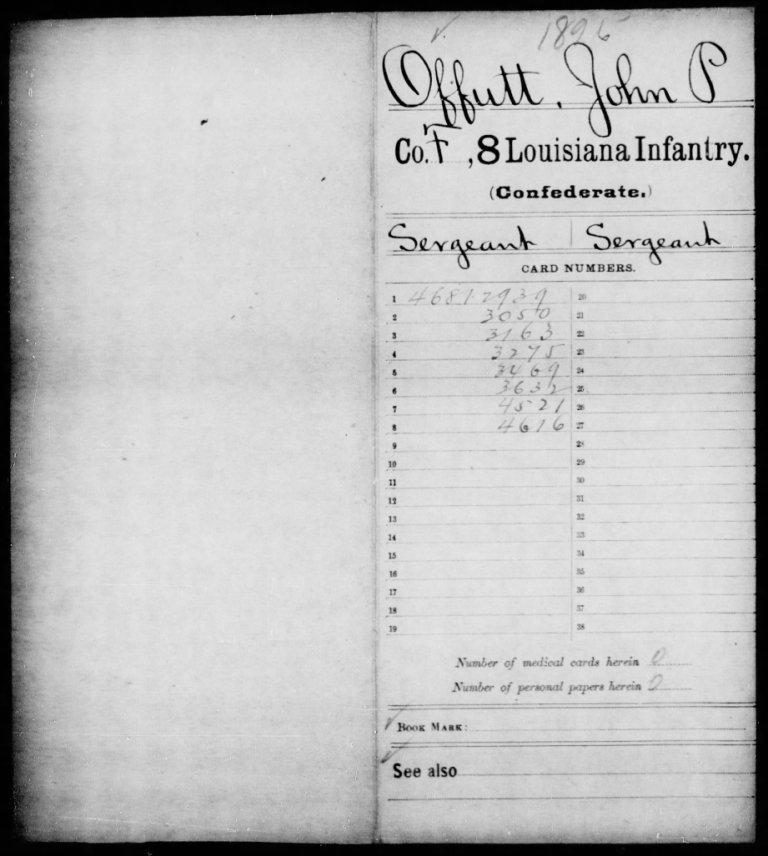 1895
Offutt, John P
Co. F, 8 Louisiana Infantry.
(Confederate.)
Sergeant | Sergeant
CARD NUMBERS.
1 46812939 20
2 3050 21
3 3163 22
4 3275 23
5 3469 24
6 3632 25
7 4521 26
8 4616 27
9 28
10 29
11 30
12 31
13 32
14 33
15 34
16 35
17 36
18 37
19 38
Number of medical cards herein 0
Number of personal papers herein 0
BOOK MARK:
See also